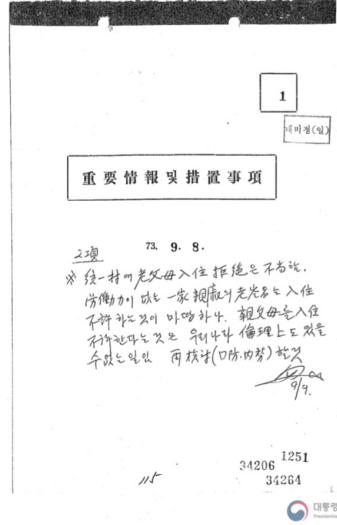 1
대비정(일)
重要情報 및 措置事項
73. 9. 8.
2項
※ 統一村에 老父母入住 拒絶은 不當함.
労働力이 없는 一家親戚의 老人을 入住
不許하는 것이 마땅하나, 親父母를 入住
不許한다는 것은 우리나라 倫理上도 있을
수 없는 일임 再検討(国防,内務) 할 것
9/9.
115
1251
34206
34264
대통령
Presidential